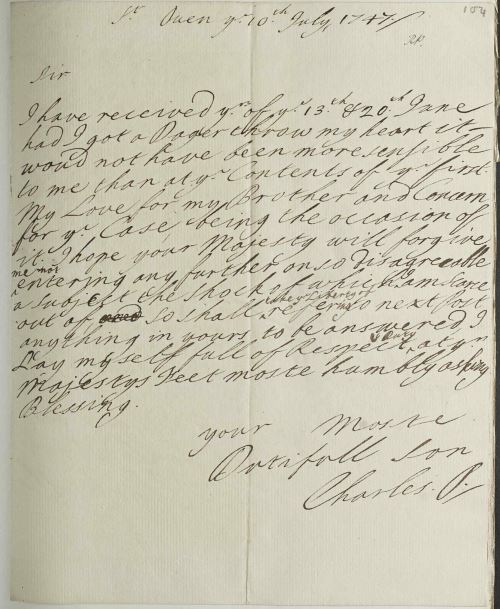 St Ouen ye 10th July, 1747
104
RP.
Sir
I have received yrs of ye 13th & 20th June
had I got a Dager throw my heart it
woud not have been more sensible
to me than at ye Contents of yr first.
My Love for my Brother and Concern
for yr Case being the occasion of
it. I hope your Majesty will forgive
me not
entering any further on so Disagreeable
a subject the shock of which I am scarce
out of so shall take ye Liberty of refering to next Post
anything in yours to be answered. I
Lay myself full of Respect & Duty at yr
Majestys Feet moste humbly asking
Blessing.
your Moste
Dutifull Son
Charles. P.